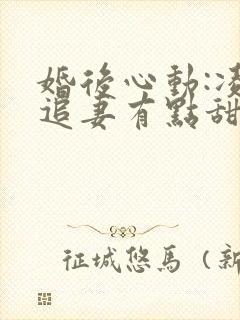 婚後心動:凌
追妻有點甜
征城悠馬（新